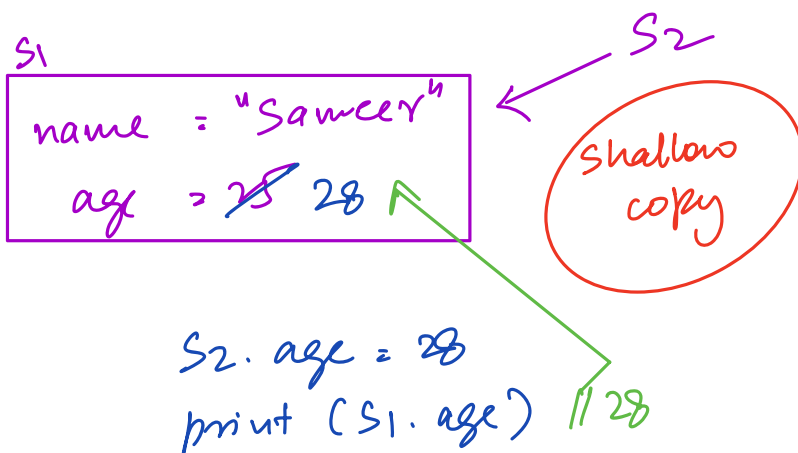 S1
S2
name : "Sameer"
age = 25 28
shallow
copy
S2. age = 28
print (S1. age) // 28